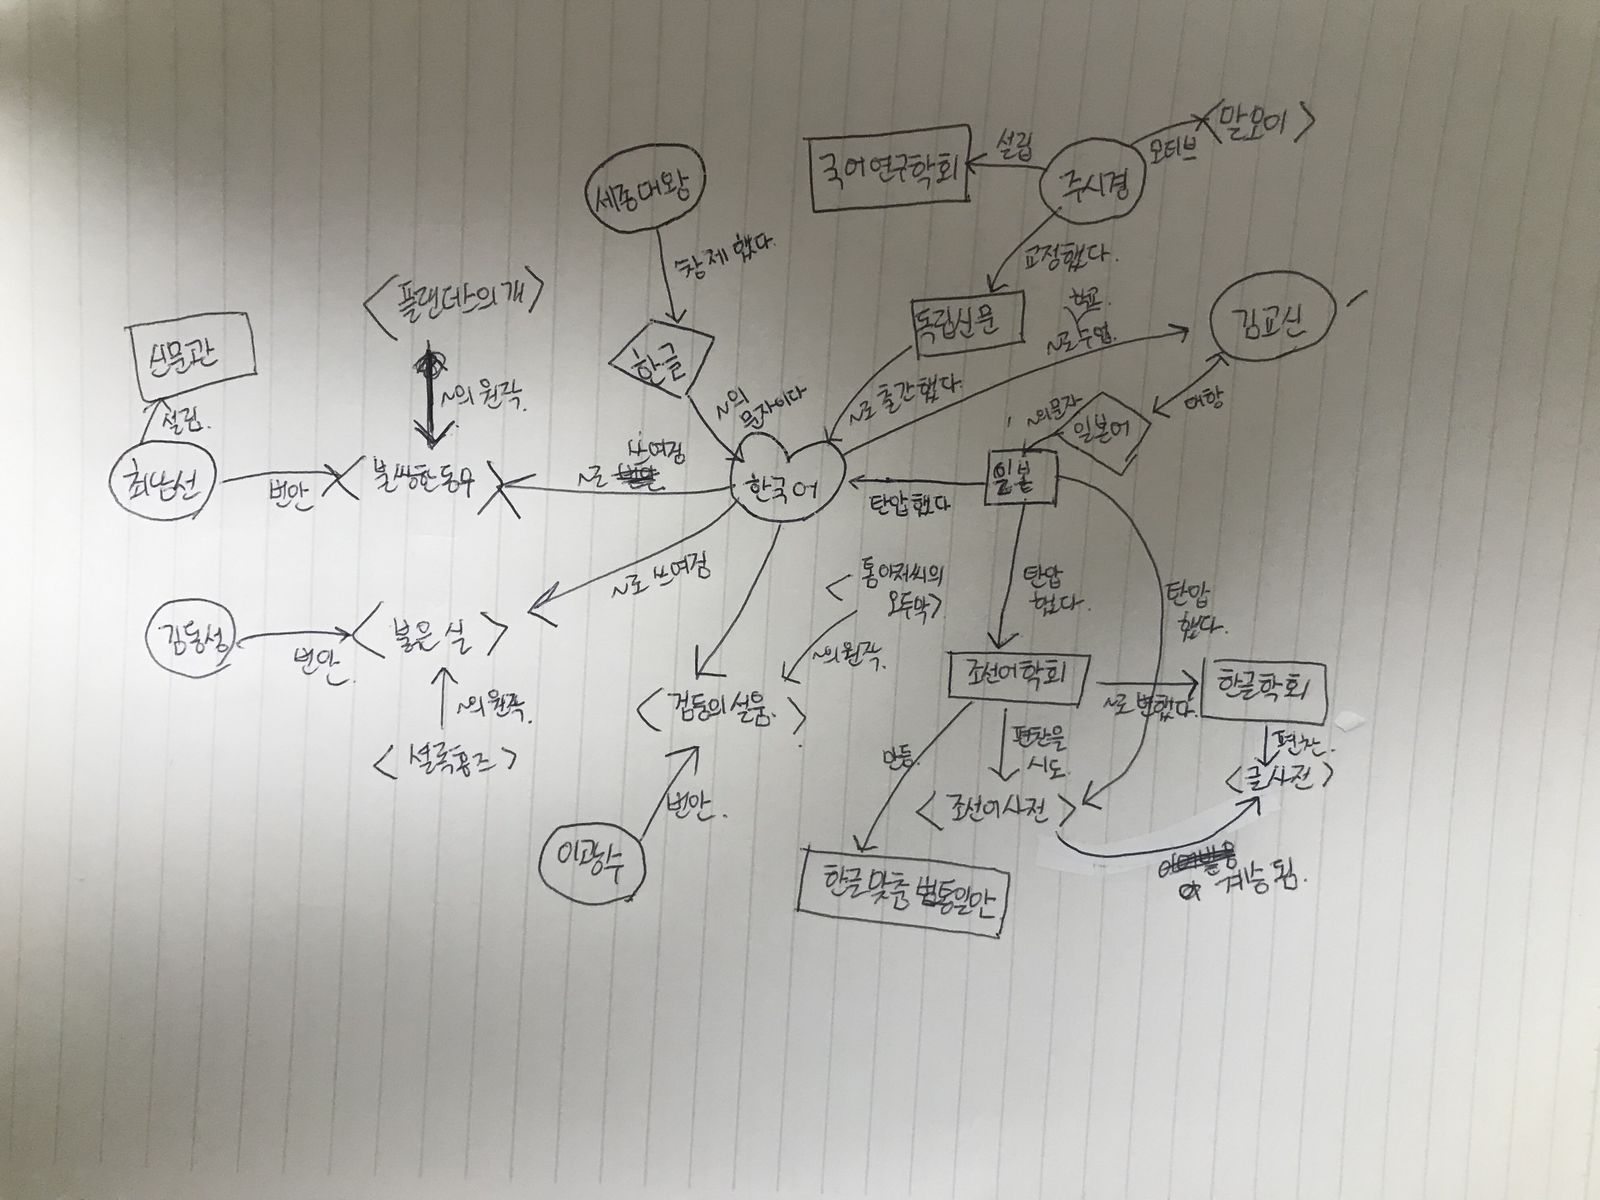 <말모이>
설립
모티브
국어연구학회
주시경
세종대왕
창제했다.
교정했다.
<플랜더스의 개>
학교.
독립신문
~로 수업.
김교신
신문관
한글
~의 원작.
~의
문자이다
~로 출간했다.
대항
설립.
~의 문자
일본어
최남선
번안
<불쌍한 동무>
쓰여짐
~로
한국어
일본
탄압했다
~로 쓰여짐
<톰아저씨의
오두막>
탄압
했다.
탄압
했다.
김동성
번안.
<붉은 실>
~의 원작.
조선어학회
한글학회
~로 변했다.
~의 원작.
<검둥의 설움>
<셜록홈즈>
만듦.
편찬을
시도.
편찬.
<큰사전>
번안.
<조선어사전>
이광수
한글 맞춤법통일안
계승됨.